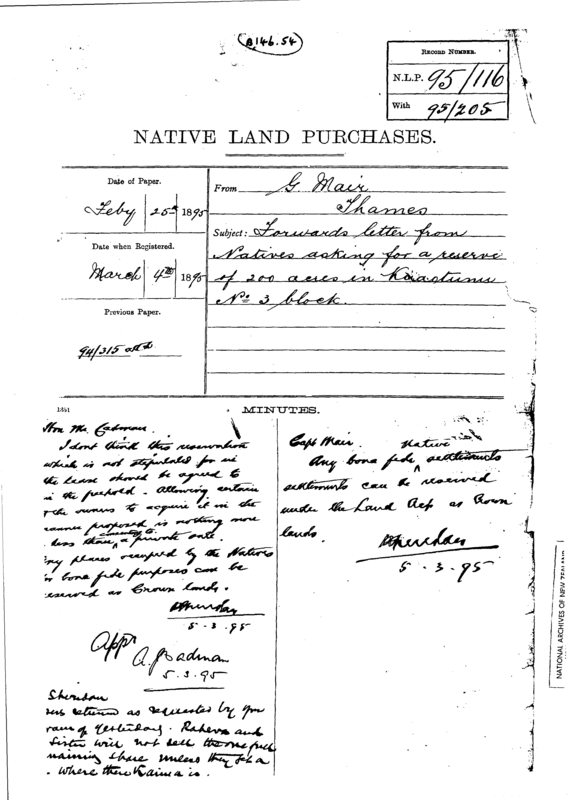 B146.54
RECORD NUMBER.
N.L.P. 95/116
With 95/205
NATIVE LAND PURCHASES.
Date of Paper.
Feby 25th 1895
Date when Registered.
March 4th 1895
Previous Paper.
94/315
From G. Mair
Thames
Subject: Forwards letter from
Natives asking for a reserve
of 200 acres in Kuaotunu
No 3 block.
1351
MINUTES.
Hon Mr. Cadman.
I dont think this reservation
which is not stipulated for in
the lease should be agreed to
in the freehold. Allowing certain
the owners to acquire it in the
manner proposed is nothing more
less than a private sale.
any places occupied by the Natives
bona fide purposes can be
reserved as Crown lands.
PSheridan
5.3.95
Appd
A. J. Cadman
5.3.95
Sheridan
returned as requested by you
of yesterday. and
sister will not sell the
share unless they get a
where there is.
Capt Mair.
Any bona fide Native settlements
settlements can be reserved
under the Land Act as Crown
lands.
PSheridan
5.3.95
NATIONAL ARCHIVES OF NEW ZEALAND